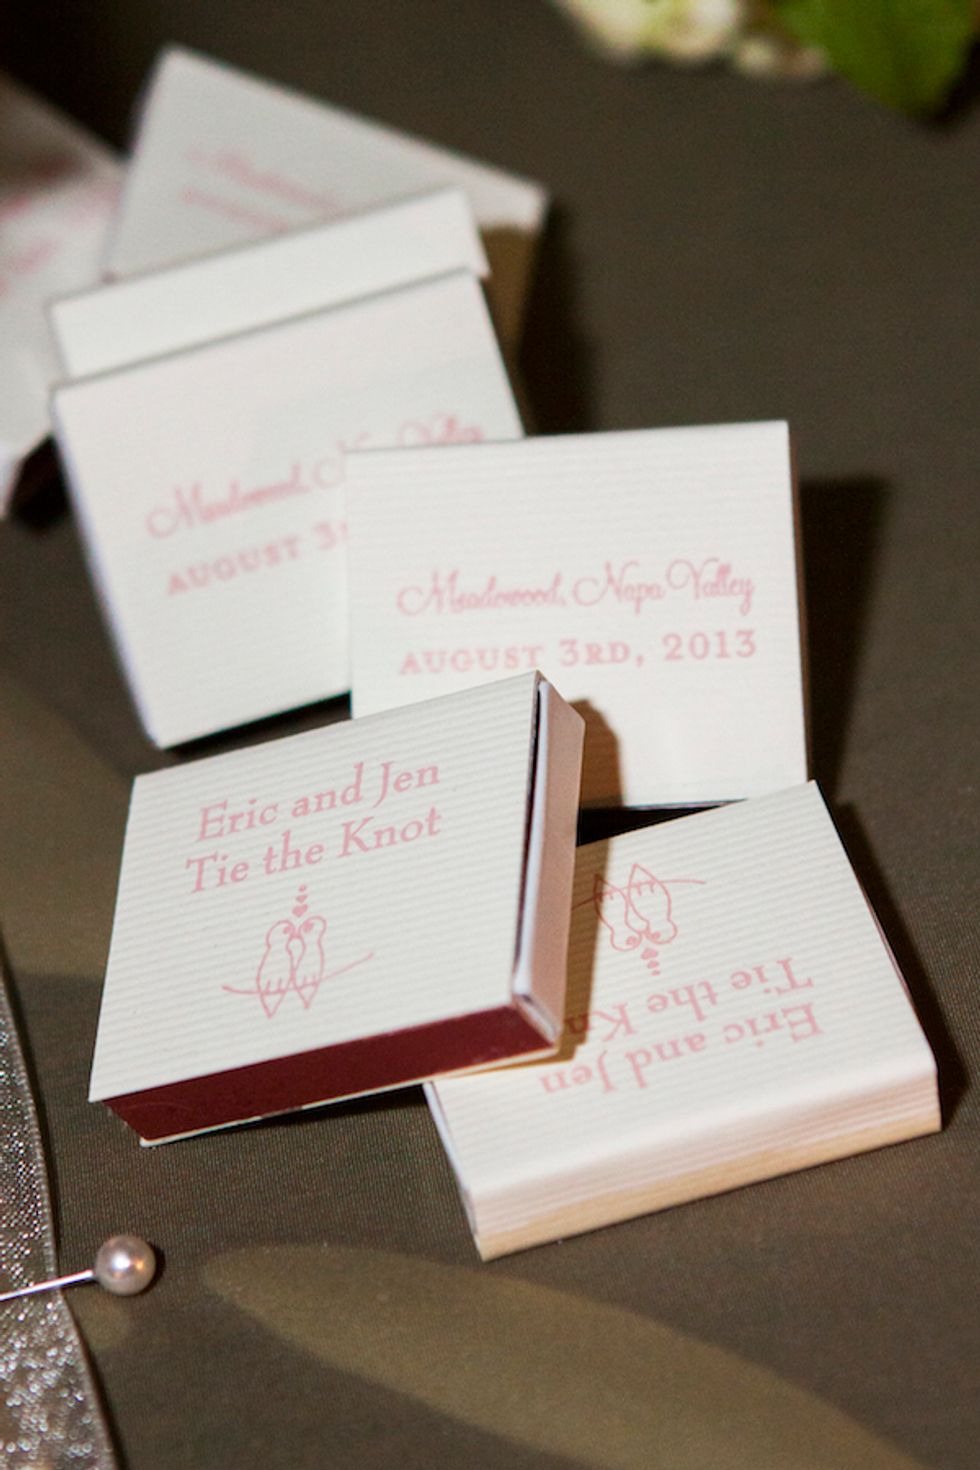 Meadowood, Na Valley
AUGUST 3
Meadowood, Napa Valley
AUGUST 3RD, 2013
Eric and Jen
Tie the Knot
Eric and Jen
Tie the Kn